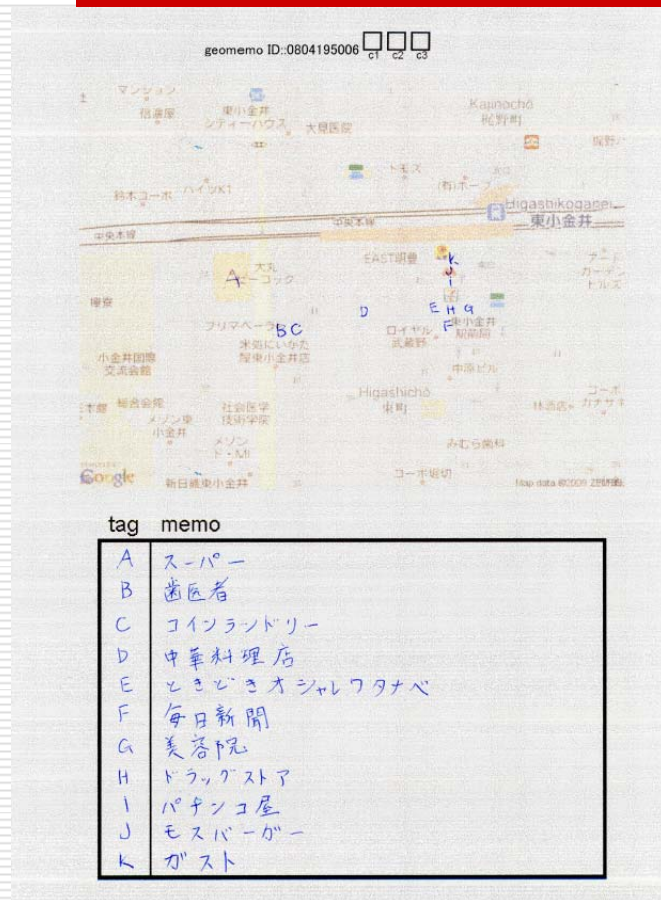 geomemo ID::0804195006
c1 c2 c3
マンション
信濃屋
東小金井
シティーハウス
大見医院
Kajinochō
梶野町
梶野
トモズ
鈴木コーポ
ハイツK1
(有)ホープ
Higashikoganei
東小金井
中央本線
中央本線
EAST明豊
K
J
I
A
大丸
ピーコック
ガーデン
ヒルズ
D
E H G
F
プリマベーラ
B C
ロイヤル
武蔵野
東小金井
駅前局
米処にいがた
小金井国際
交流会館
屋東小金井店
中原ビル
Higashichō
東町
総合会館
メゾン東
小金井
社会医学
技術学院
コーポ
カナサキ
メゾン
ド・MI
みむら歯科
Google
新日織東小金井
コーポ堀切
Map data ©2009
tag memo
A スーパー
B 歯医者
C コインランドリー
D 中華料理店
E ときどきオシャレワタナベ
F 毎日新聞
G 美容院
H ドラッグストア
I パチンコ屋
J モスバーガー
K ガスト